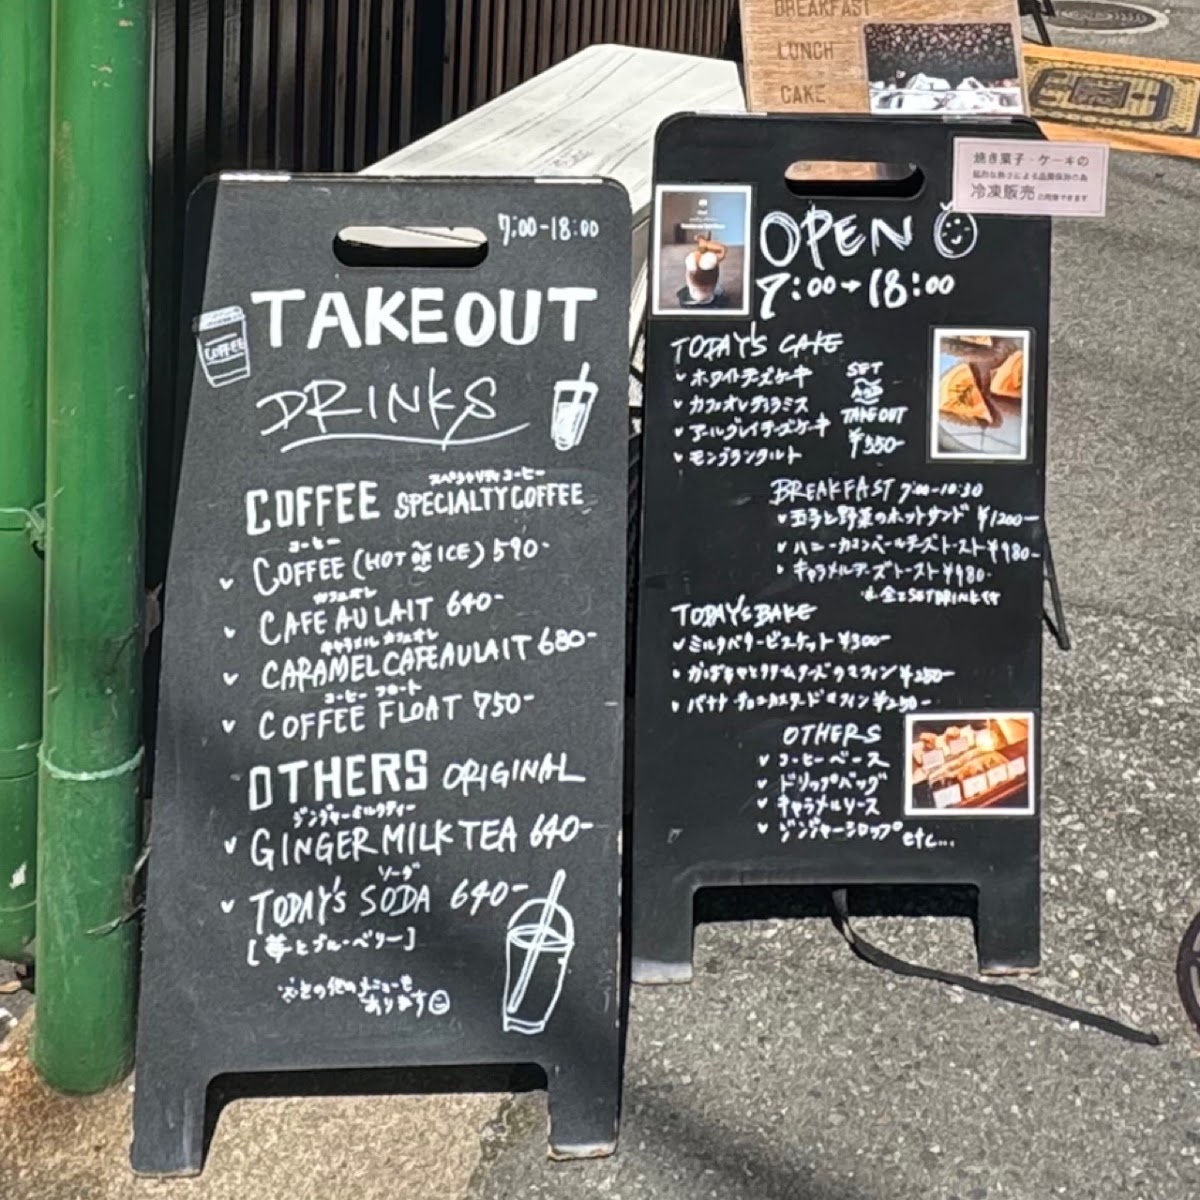 7:00-18:00
TAKEOUT
COFFEE
DRINKS
スペシャリティコーヒー
COFFEE SPECIALTY COFFEE
コーヒー
COFFEE (HOT or ICE) 590-
カフェオレ
CAFE AU LAIT 640-
キャラメルカフェオレ
CARAMEL CAFE AU LAIT 680-
コーヒー フロート
COFFEE FLOAT 750-
OTHERS ORIGINAL
ジンジャーミルクティー
GINGER MILK TEA 640-
ソーダ
TODAY'S SODA 640-
[苺とブルーベリー]
※その他のメニューも
あります
BREAKFAST
LUNCH
CAKE
焼き菓子・ケーキの
冷凍販売
OPEN
7:00→18:00
TODAY'S CAKE
ホワイトチーズケーキ
カフェオレティラミス
アールグレイチーズケーキ
モンブランタルト
SET
AND
TAKEOUT
¥550-
BREAKFAST 7:00-10:30
玉子と野菜のホットサンド ¥1200-
ハニーカマンベールチーズトースト ¥980-
キャラメルチーズトースト ¥980-
※全てSET DRINK付
TODAY'S BAKE
ミルクバタービスケット ¥300-
かぼちゃとクリームチーズのマフィン ¥250-
バナナチョコカスタードマフィン ¥250-
OTHERS
コーヒーベース
ドリップバッグ
キャラメルソース
ジンジャーシロップ etc...